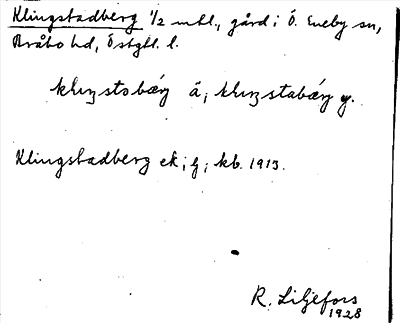 Klingstadberg 1/2 mtl., gård i Ö. Eneby sn,
Bråbo hd, Östgtl. l.
ä,
Klingstadberg ek; f; kb. 1913.
R. Liljefors
1928